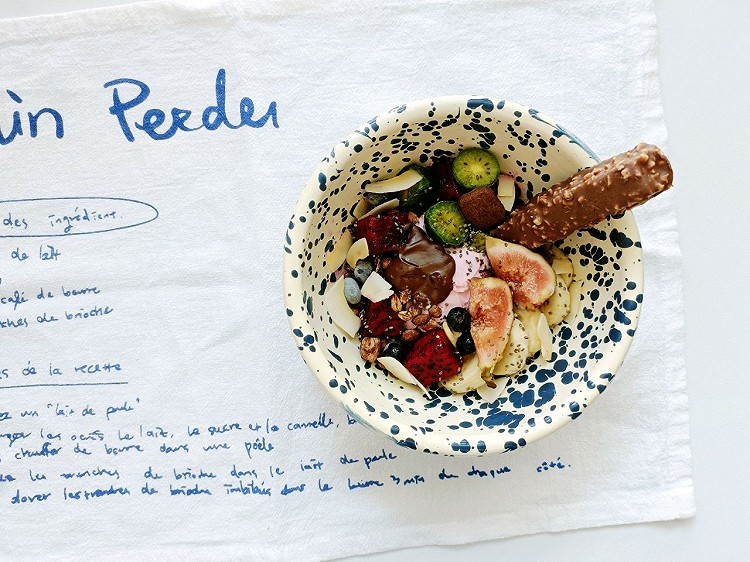 ain Perdu
des ingrédients
de lait
café de beurre
nches de brioche
s de la recette
ez un "lait de poule"
anger les oeufs le lait, le sucre et la cannelle,
chauffer de beurre dans une poêle
les tranches de brioche dans le lait de poule
dorer les tranches de brioche imbibées dans le beurre 3 min de chaque côté.